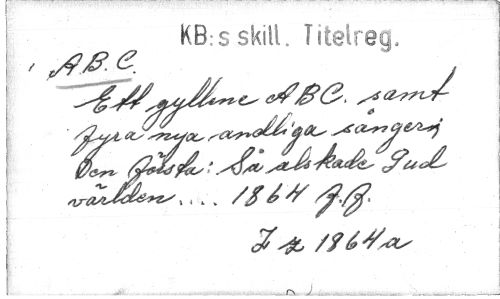 KB:s skill. Titelreg.
A.B.C.
Ett gyllene ABC. samt
fyra nya andliga sånger;
Den första: Så älskade Gud
världen .... 1864 f.f.
F z 1864 a